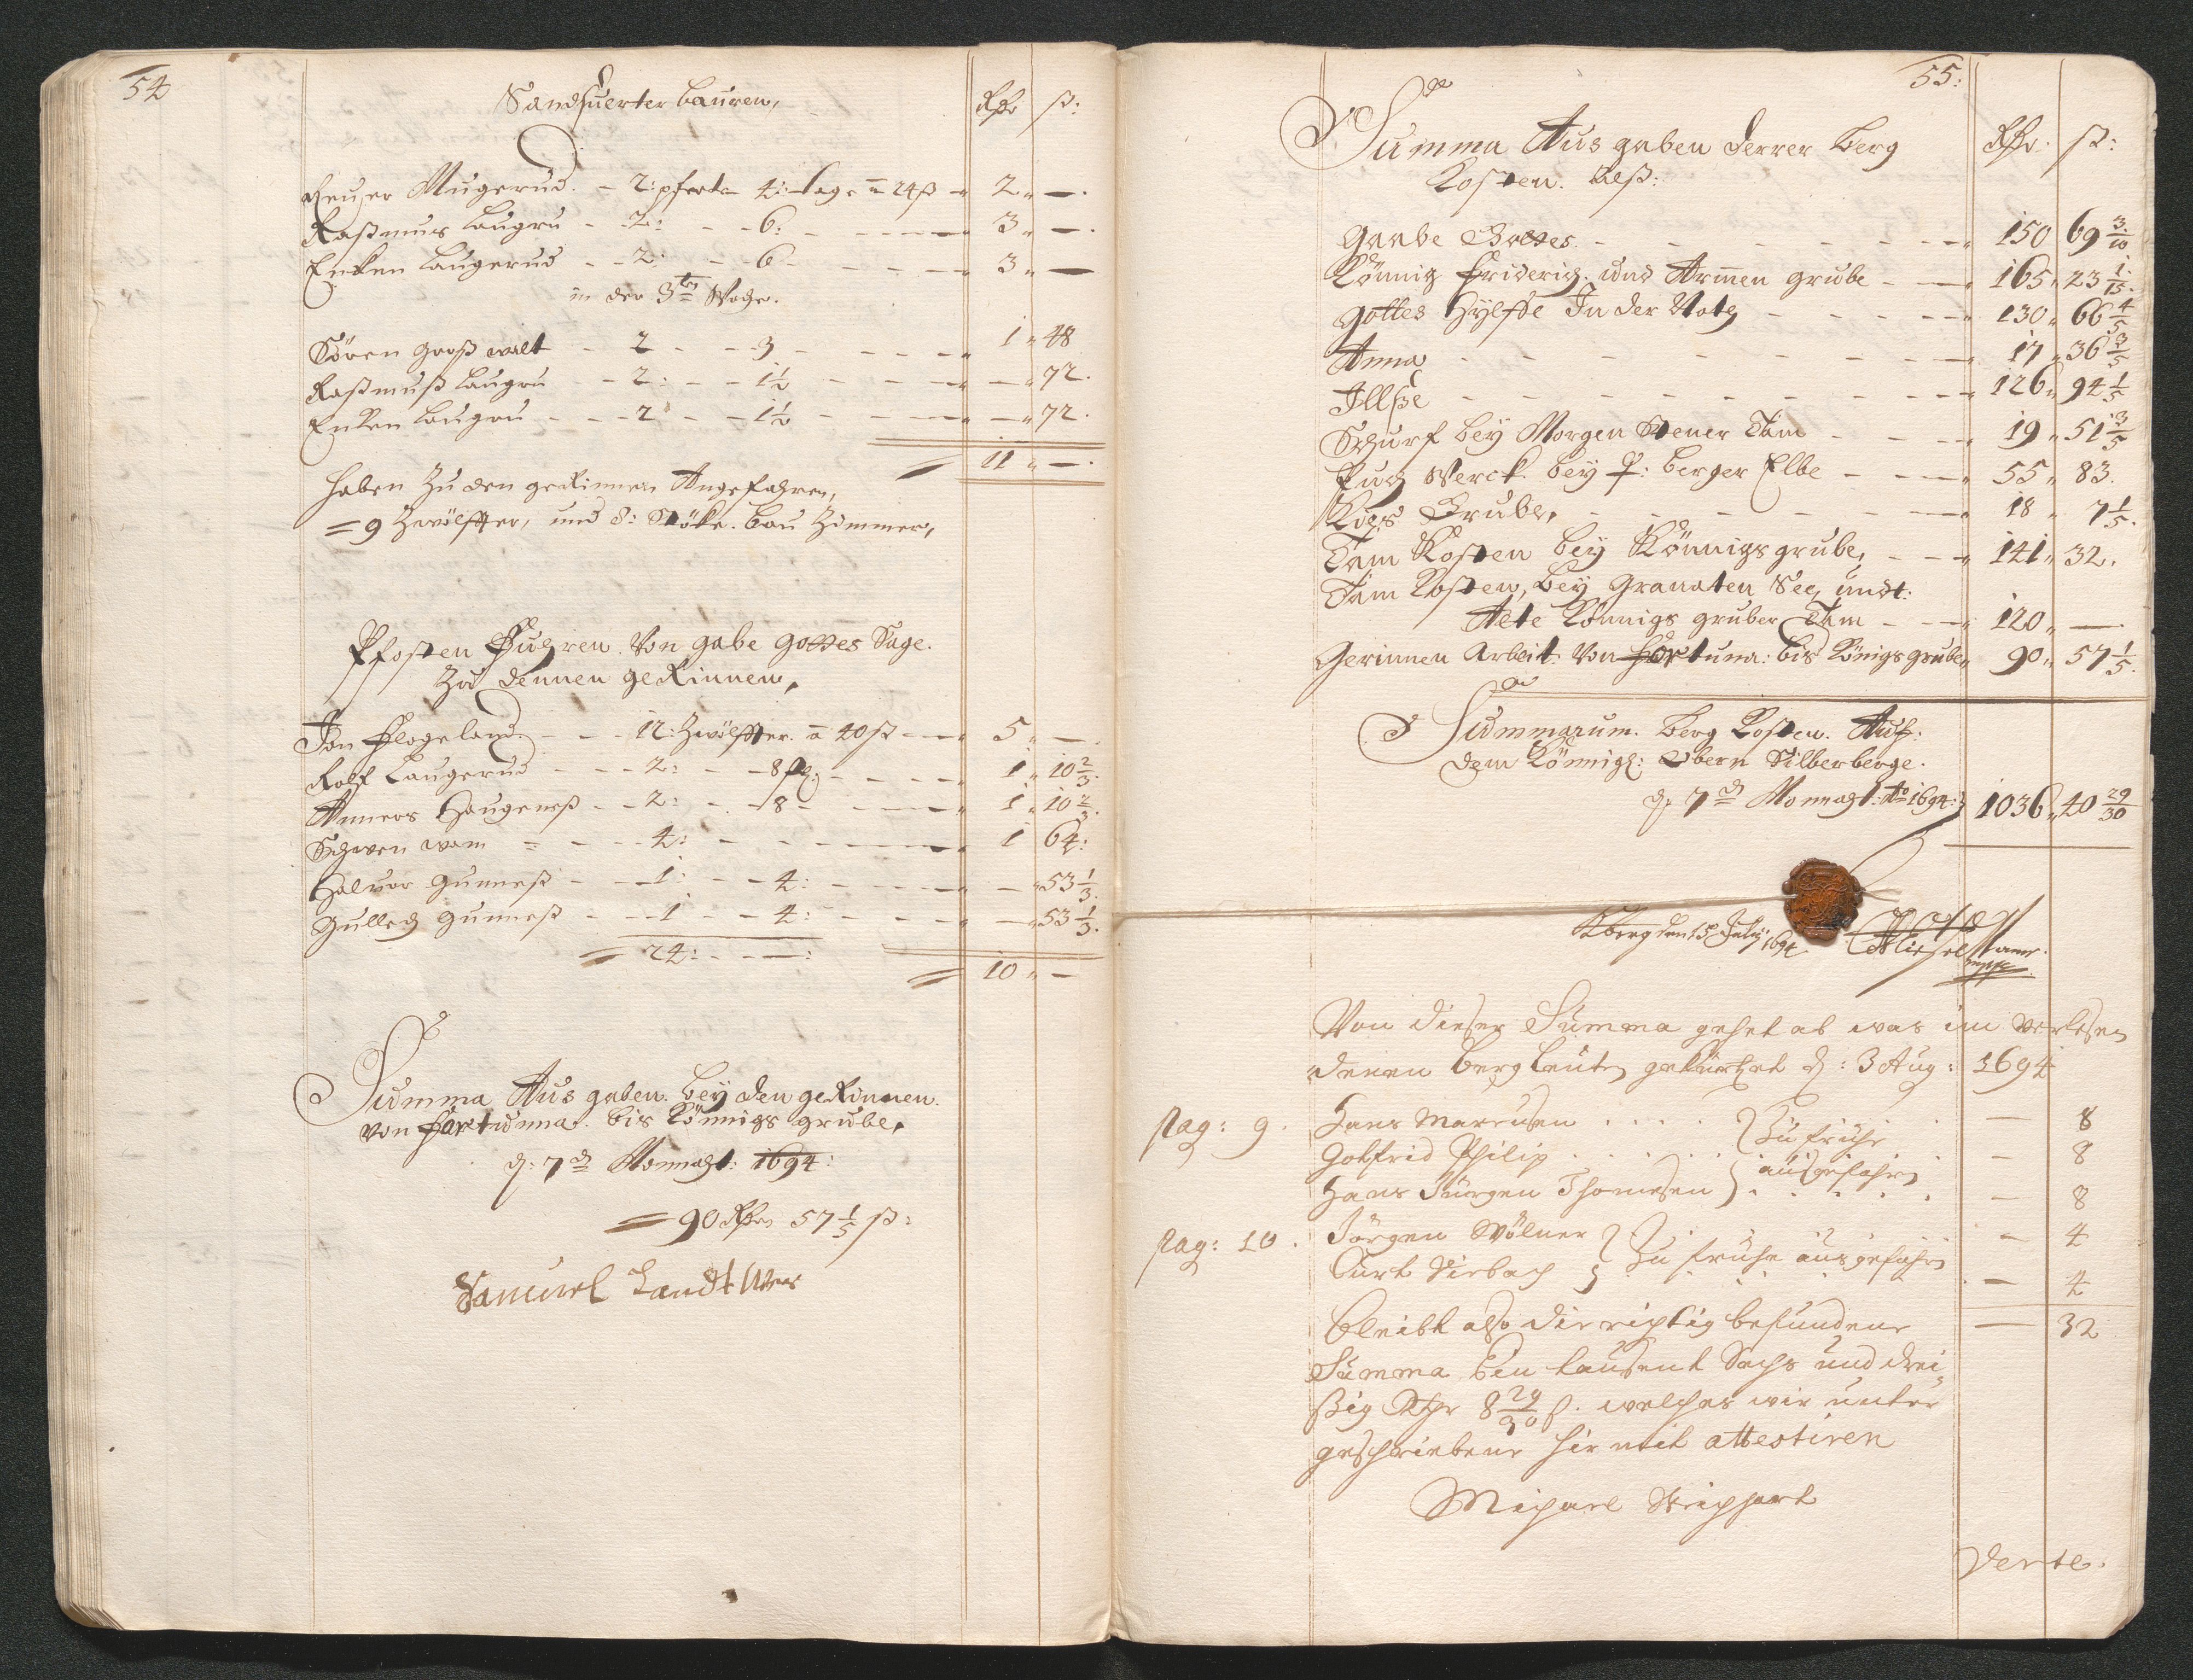 54
Sandsuerter Bauren,
Rthr ß:
Reuser Mugerud. - 2: pferde 4: tage a 24 ß - 2 „ -.
Raßmus Laugru - 2: - 6: - 3 „ -.
Enken Laugerud - 2: - 6 - 3 „ -
in der 3ten Woche.
Sören großwalt - 2 - 3 - 1 „ 48
Raßmuß Laugru - 2: - 1½ - „ 72.
Enken Laugru - 2 - 1½ - „ 72.
= 11 „ -.
Haben Zu den geRinnen Angefahren,
= 9 Zwölffter, und 8: Stöke. Bau Zimmer,
Pfosten Fuhren. Von gabe gottes Sage.
Zu dennen geRinnen,
Jon Flogeland - 12: Zwölffter. a 40 ß - 5 „ -.
Rolf Laugerud - 2: - 8 - 1 „ 10 2/3.
Anners Haugeneß - 2: - 8 - 1 „ 10 2/3.
Schwen wam - 4: - 1 64:
Halvor Gunneß - 1: - 4: - „ 53 1/3.
Gulleg Gunneß - 1 - 4: - „ 53 1/3.
= 24: - :
= 10 „ -
Summa Ausgaben. bey den geRinnen.
von Fortunna. bis Könnigs grube,
d: 7den Monnaht: 1694:
= 90 Rthr 57 1/5 ß:
Samuel
55:
Summa Ausgaben derrer Berg
Kosten. Alß:
Rthr. ß:
Gaabe Gottes. - 150 69 3/10
Könnig Friderich. und Armen grube - 165 „ 23 1/15.
Gottes Hylffe In der Noth - 130 „ 66 4/5
Anna - 17 „ 36 3/5
Illße - 126 „ 94 1/5
Schurf bey Morgen Stener Tam - 19 „ 51 3/5
Puch Werck bey berger Elbe - 55 „ 83.
Kies Grube, - 18 „ 7 1/5.
Tam Kosten bey Könnigs grube, - 141 „ 32.
Tam Kosten, bey Granaten See, undt.
Alte Könnigs gruber Tam - 120 „ -.
Gerinnen Arbeit: Von Fortuna: bis Königs grube, 90 „ 57 1/5.
Summarum. Berg Kosten. Auf.
dem Könnigl: Obern Silberberge.
d. 7d Monnaht: Ao 1694: 1036 „ 40 29/30
Kberg den 15 July 1694
Von dieser Summa gehet ab was im verlesen
denen Bergleuten gekürtzet d: 3 Aug: 1694
pag: 9. Hans Marcusen . . . . Zu fruhe - 8
Gotfrid Philip . . . . . ausgefahren - 8
Hans Jürgen Thomesen . . . . . - 8
pag: 10. Jörgen Wölner - 4
Curt Zu fruhe ausgefahren - 4
bleibt also die richtig befundene - 32
Summa Ein tausent Sechs und drei
ßig Rthr 8 29/30 ß. welches wir unter
geschriebene hir mit attestiren
Michael
Verte.